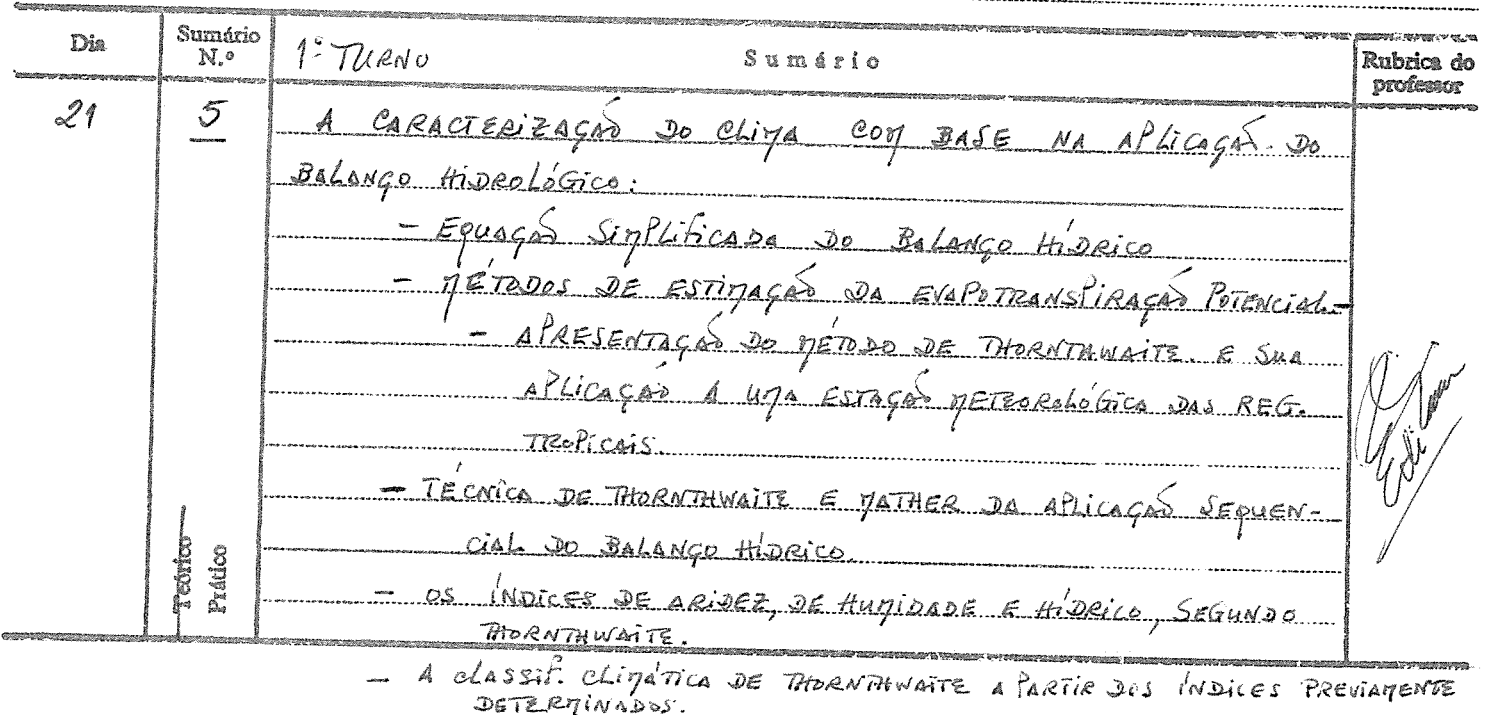 Dia
Sumário N.º
1º TURNO
Sumário
Rubrica do professor
21
5
A CARACTERIZAÇÃO DO CLIMA COM BASE NA APLICAÇÃO DO
BALANÇO HIDROLÓGICO:
- EQUAÇÃO SIMPLIFICADA DO BALANÇO HÍDRICO
- MÉTODOS DE ESTIMAÇÃO DA EVAPOTRANSPIRAÇÃO POTENCIAL-
- APRESENTAÇÃO DO MÉTODO DE THORNTHWAITE. E SUA
APLICAÇÃO A UMA ESTAÇÃO METEOROLÓGICA DAS REG.
TROPICAIS.
- TÉCNICA DE THORNTHWAITE E MATHER DA APLICAÇÃO SEQUEN-
CIAL DO BALANÇO HÍDRICO.
- OS ÍNDICES DE ARIDEZ, DE HUMIDADE E HÍDRICO, SEGUNDO
THORNTHWAITE.
Teórico
Prático
- A CLASSIF. CLIMÁTICA DE THORNTHWAITE A PARTIR DOS ÍNDICES PREVIAMENTE
DETERMINADOS.